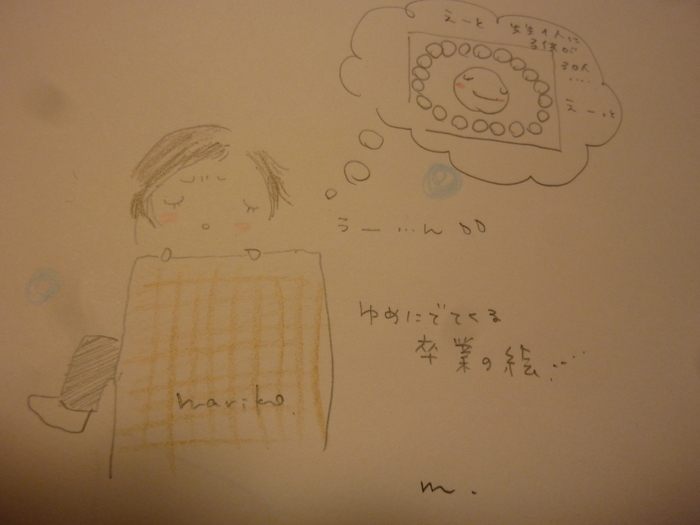 えーと 先生1人に
子供が
30人
....
えーっと
うー…ん
ゆめにでてくる
卒業の絵....
mariko.
m.